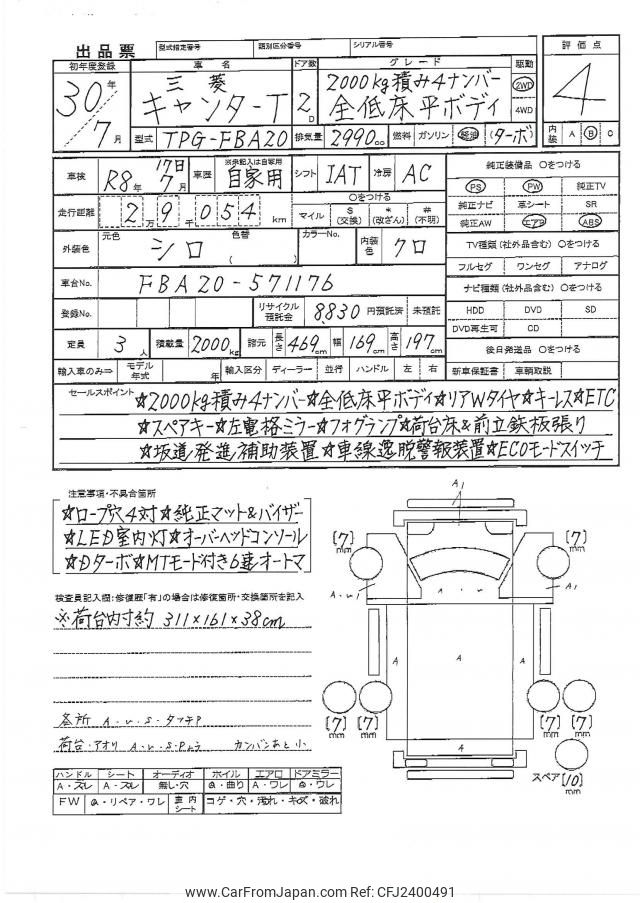 出品票
型式指定番号 類別区分番号 シリアル番号
初年度登録 車名 ドア数 グレード 駆動 評価点
30年 7月
三菱 キャンターT 2D
2000kg積み4ナンバー
全低床平ボディ
2WD 4WD
4
内装 A B C
型式 TPG-FBA20 排気量 2990cc 燃料 ガソリン 軽油 (ターボ)
車検 R8年 7月 17日 車歴 ※未記入は自家用 自家用 シフト IAT 冷房 AC
走行距離 2万9千054km
○をつける
マイル $(交換) *(改ざん) #(不明)
純正装備品 ○をつける
PS PW 純正TV
純正ナビ 革シート SR
純正AW エアB ABS
外装色 元色 シロ 色替 ( ) カラーNo. 内装色 クロ
TV種類(社外品含む) ○をつける
フルセグ ワンセグ アナログ
車台No. FBA20-571176
ナビ種類(社外品含む) ○をつける
HDD DVD SD
DVD再生可 CD
登録No. リサイクル預託金 8830 円預託済 未預託
定員 3人 積載量 2000kg 諸元 長さ 469cm 幅 169cm 高さ 197cm
後日発送品 ○をつける
新車保証書 車輌取説
輸入車のみ⇒ モデル年式 年 輸入区分 ディーラー 並行 ハンドル 左 右
セールスポイント
☆2000kg積み4ナンバー☆全低床平ボディ☆リアWタイヤ☆キーレス☆ETC
☆スペアキー☆左電格ミラー☆フォグランプ☆荷台床&前立鉄板張り
☆坂道発進補助装置☆車線逸脱警報装置☆ECOモードスイッチ
注意事項・不具合箇所
☆ロープ穴4対☆純正マット&バイザー
☆LED室内灯☆オーバーヘッドコンソール
☆Dターボ☆MTモード付き6速オートマ
検査員記入欄:修復歴「有」の場合は修復箇所・交換箇所を記入
※荷台内寸約 311×161×38cm
各所 A・U・S・タッチP
荷台・アオリ A・U・S・Pムラ カンバンあと小
ハンドル シート オーディオ ホイル エアロ ドアミラー
A・スレ A・スレ 無し・穴 A・曲り A・ワレ A・ワレ
FW A・リペア・ワレ 車内シート コゲ・穴・汚れ・キズ・破れ
A1
[7]mm [7]mm
A・U1 A・U A1
A A A
[7]mm [7]mm [7]mm [7]mm
A
スペア[10]mm
www.CarFromJapan.com Ref: CFJ2400491